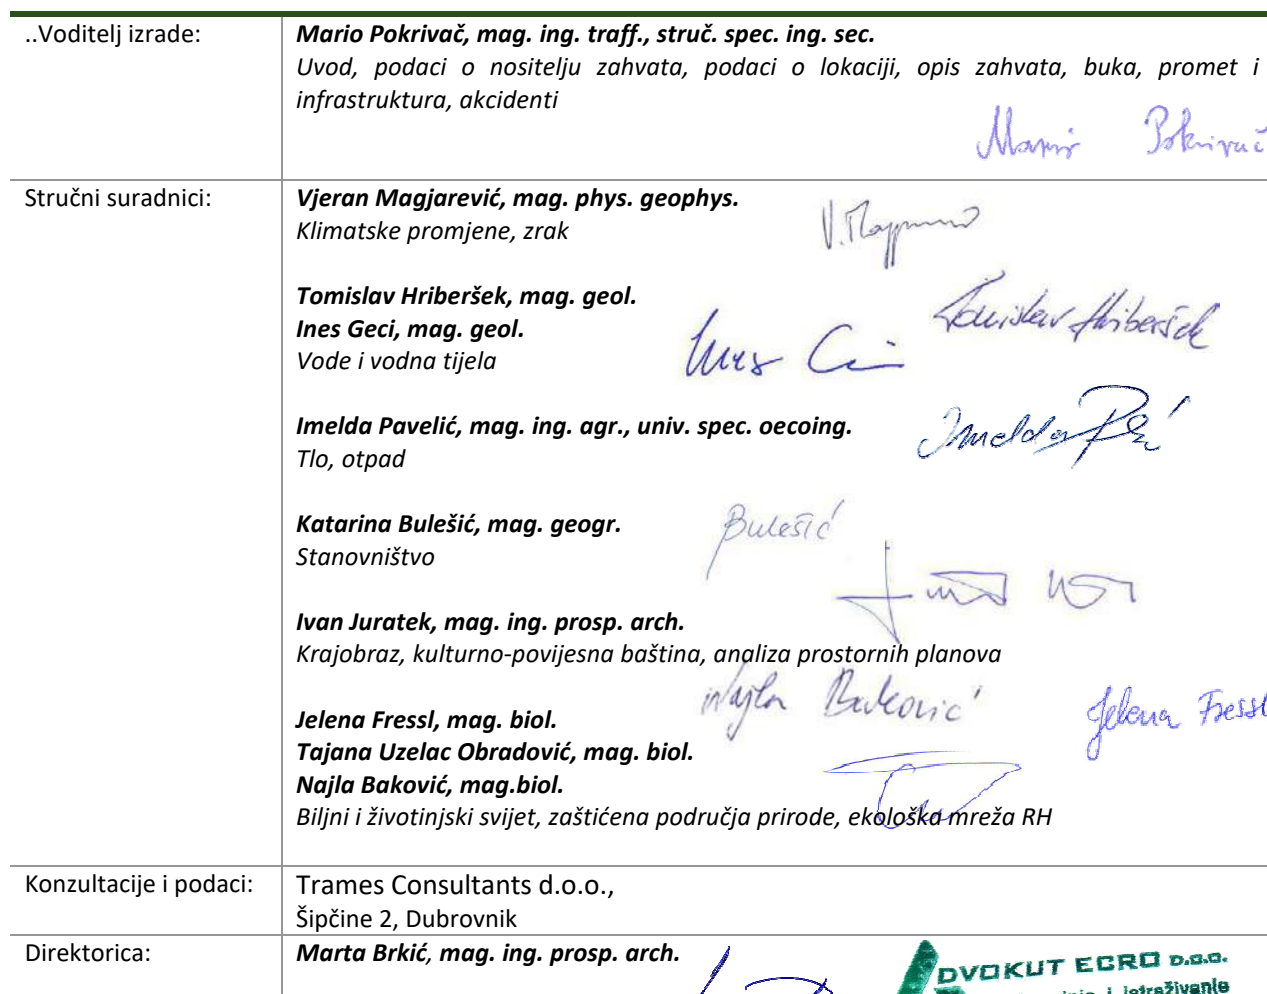 ..Voditelj izrade:
Mario Pokrivač, mag. ing. traff., struč. spec. ing. sec.
Uvod, podaci o nositelju zahvata, podaci o lokaciji, opis zahvata, buka, promet i
infrastruktura, akcidenti
Mario Pokrivač
Stručni suradnici:
Vjeran Magjarević, mag. phys. geophys.
Klimatske promjene, zrak
Tomislav Hriberšek, mag. geol.
Ines Geci, mag. geol.
Vode i vodna tijela
Tomislav Hriberšek
Ines
Imelda Pavelić, mag. ing. agr., univ. spec. oecoing.
Tlo, otpad
Imelda
Katarina Bulešić, mag. geogr.
Stanovništvo
Bulešić
Ivan Juratek, mag. ing. prosp. arch.
Krajobraz, kulturno-povijesna baština, analiza prostornih planova
Najla Baković
Jelena Fressl
Jelena Fressl, mag. biol.
Tajana Uzelac Obradović, mag. biol.
Najla Baković, mag.biol.
Biljni i životinjski svijet, zaštićena područja prirode, ekološka mreža RH
Konzultacije i podaci:
Trames Consultants d.o.o.,
Šipčine 2, Dubrovnik
Direktorica:
Marta Brkić, mag. ing. prosp. arch.
DVOKUT ECRO D.O.O.
i istraživanje